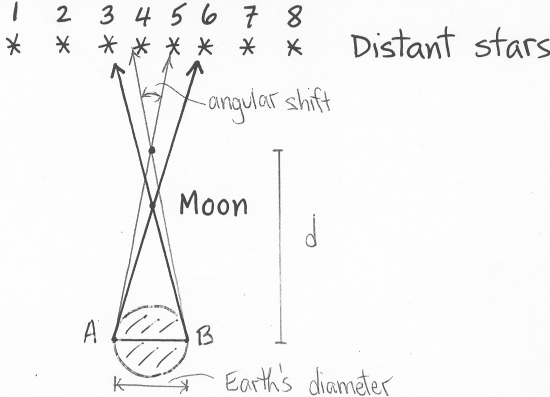 1 2 3 4 5 6 7 8
* * * * * * * * Distant stars
angular shift
Moon
d
A B
Earth's diameter